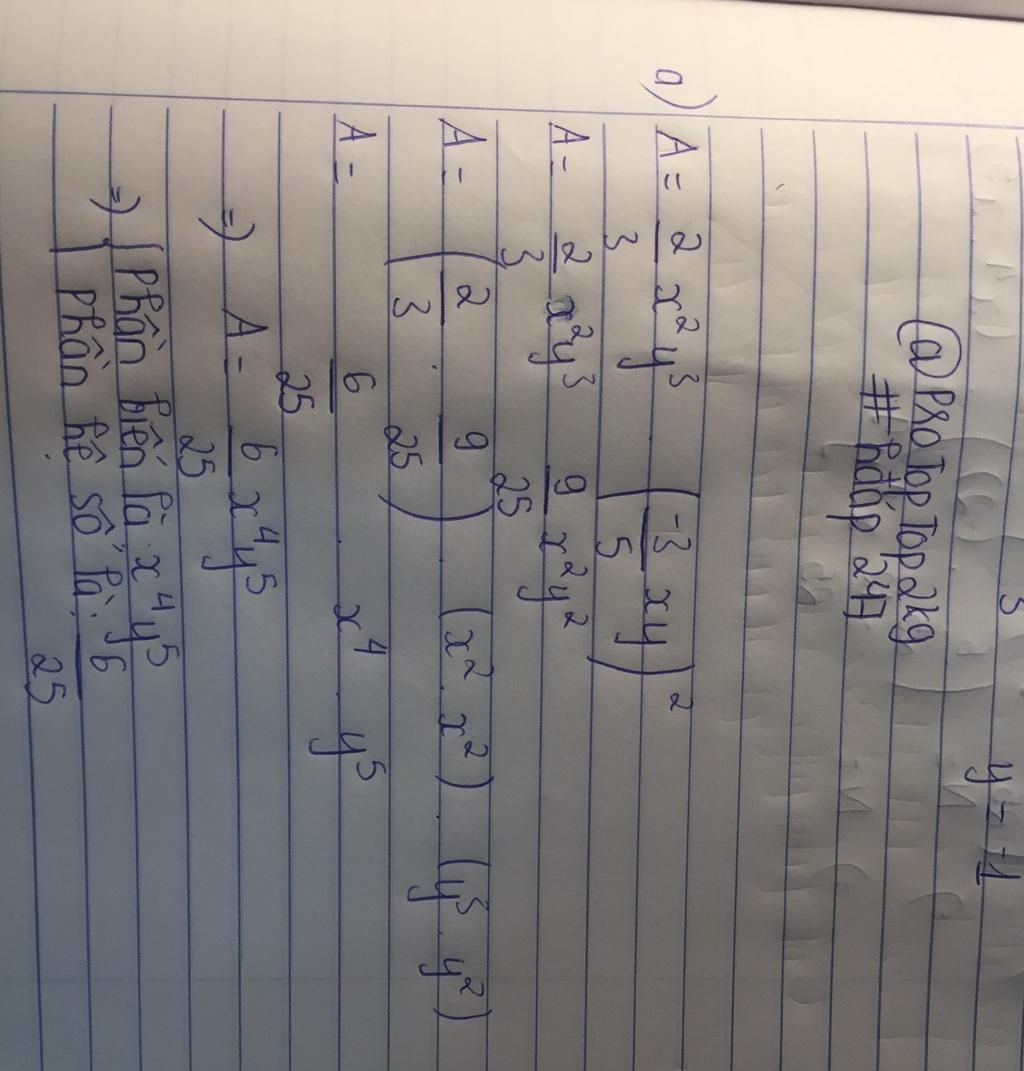 y = -1
@ProTopTop2kg
# hđáp 247
a) A = 2/3 x²y³ . (-3/5 xy)²
A = 2/3 x²y³ . 9/25 x²y²
A = (2/3 . 9/25) . (x² . x²) . (y³ . y²)
A = 6/25 . x⁴ . y⁵
=) A = 6/25 x⁴y⁵
=) { Phần biến là: x⁴y⁵
Phần hệ số là: 6/25